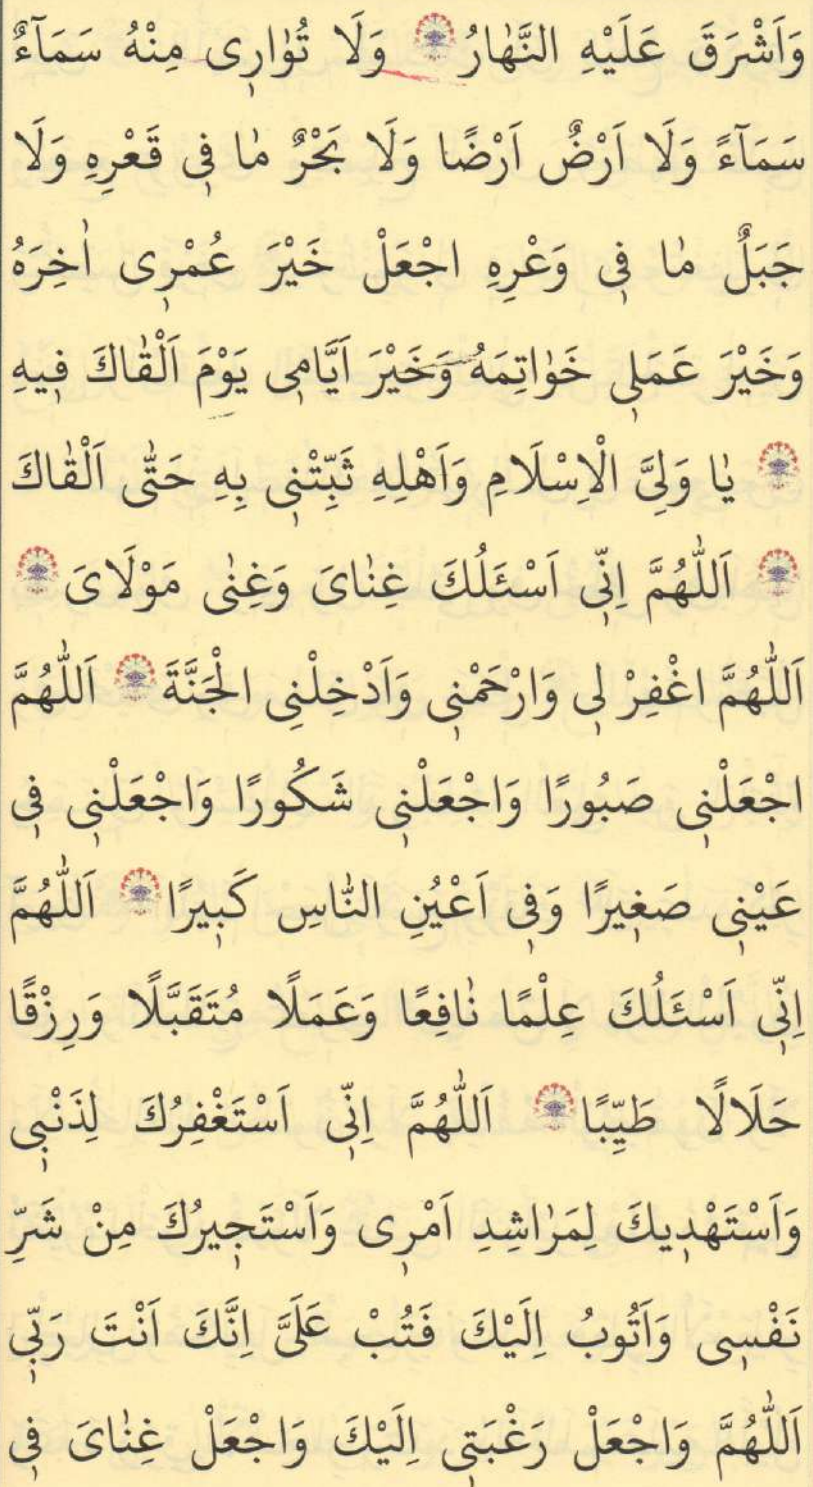 وَاَشْرَقَ عَلَيْهِ النَّهٰارُ وَلَا تُوٰارِى مِنْهُ سَمَآءٌ
سَمَآءً وَلَا اَرْضٌ اَرْضًا وَلَا بَحْرٌ مٰا فِى قَعْرِهِ وَلَا
جَبَلٌ مٰا فِى وَعْرِهِ اجْعَلْ خَيْرَ عُمْرِى اٰخِرَهُ
وَخَيْرَ عَمَلِى خَوٰاتِمَهُ وَخَيْرَ اَيَّامِى يَوْمَ اَلْقٰاكَ فِيهِ
يٰا وَلِىَّ الْاِسْلَامِ وَاَهْلِهِ ثَبِّتْنِى بِهِ حَتّٰى اَلْقٰاكَ
اَللّٰهُمَّ اِنِّى اَسْئَلُكَ غِنٰاىَ وَغِنٰى مَوْلَاىَ
اَللّٰهُمَّ اغْفِرْ لِى وَارْحَمْنِى وَاَدْخِلْنِى الْجَنَّةَ اَللّٰهُمَّ
اجْعَلْنِى صَبُورًا وَاجْعَلْنِى شَكُورًا وَاجْعَلْنِى فِى
عَيْنِى صَغِيرًا وَفِى اَعْيُنِ النّٰاسِ كَبِيرًا اَللّٰهُمَّ
اِنِّى اَسْئَلُكَ عِلْمًا نٰافِعًا وَعَمَلًا مُتَقَبَّلًا وَرِزْقًا
حَلَالًا طَيِّبًا اَللّٰهُمَّ اِنِّى اَسْتَغْفِرُكَ لِذَنْبِى
وَاَسْتَهْدِيكَ لِمَرٰاشِدِ اَمْرِى وَاَسْتَجِيرُكَ مِنْ شَرِّ
نَفْسِى وَاَتُوبُ اِلَيْكَ فَتُبْ عَلَىَّ اِنَّكَ اَنْتَ رَبِّى
اَللّٰهُمَّ وَاجْعَلْ رَغْبَتِى اِلَيْكَ وَاجْعَلْ غِنٰاىَ فِى